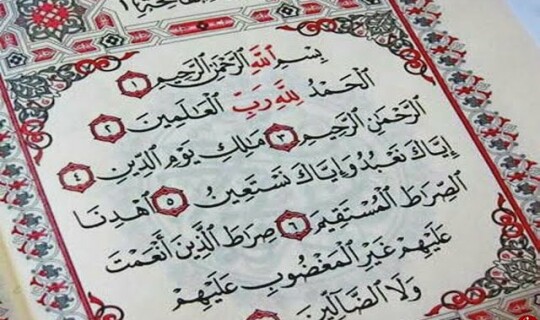 بِسْمِ اللَّهِ الرَّحْمَٰنِ الرَّحِيمِ ١
الْحَمْدُ لِلَّهِ رَبِّ الْعَالَمِينَ ٢
الرَّحْمَٰنِ الرَّحِيمِ ٣ مَالِكِ يَوْمِ الدِّينِ ٤
إِيَّاكَ نَعْبُدُ وَإِيَّاكَ نَسْتَعِينُ ٥ اهْدِنَا
الصِّرَاطَ الْمُسْتَقِيمَ ٦ صِرَاطَ الَّذِينَ أَنْعَمْتَ
عَلَيْهِمْ غَيْرِ الْمَغْضُوبِ عَلَيْهِمْ
وَلَا الضَّالِّينَ